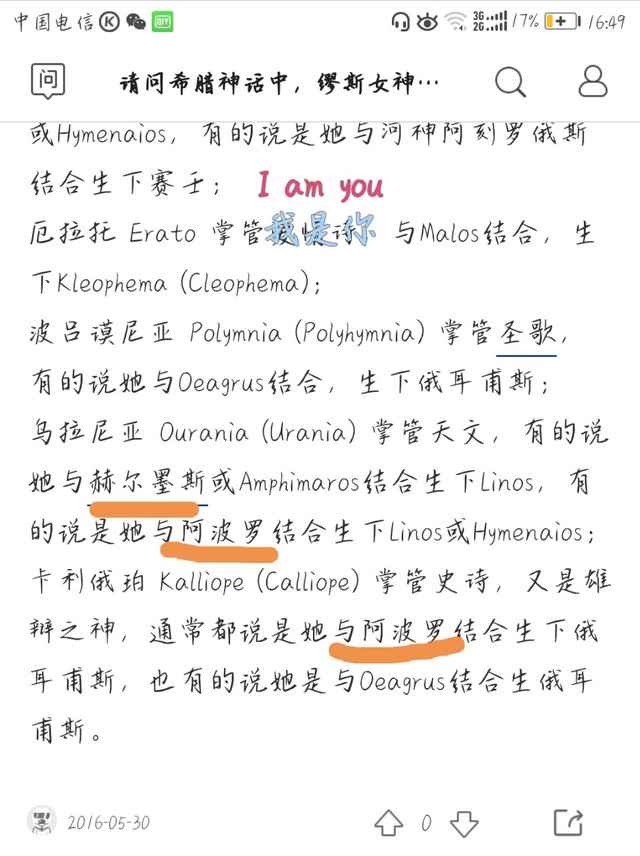 中国电信 K QIY 3G 2G 17% 16:49
问 请问希腊神话中，缪斯女神…
或Hymenaios，有的说是她与河神阿刻罗俄斯
结合生下赛壬；
I am you
我是你
厄拉托 Erato 掌管爱情诗 与Malos结合，生
下Kleophema (Cleophema)；
波吕谟尼亚 Polymnia (Polyhymnia) 掌管圣歌，
有的说她与Oeagrus结合，生下俄耳甫斯；
乌拉尼亚 Ourania (Urania) 掌管天文，有的说
她与赫尔墨斯或Amphimaros结合生下Linos，有
的说是她与阿波罗结合生下Linos或Hymenaios；
卡利俄珀 Kalliope (Calliope) 掌管史诗，又是雄
辩之神，通常都说是她与阿波罗结合生下俄
耳甫斯，也有的说她是与Oeagrus结合生俄耳
甫斯。
2016-05-30 0